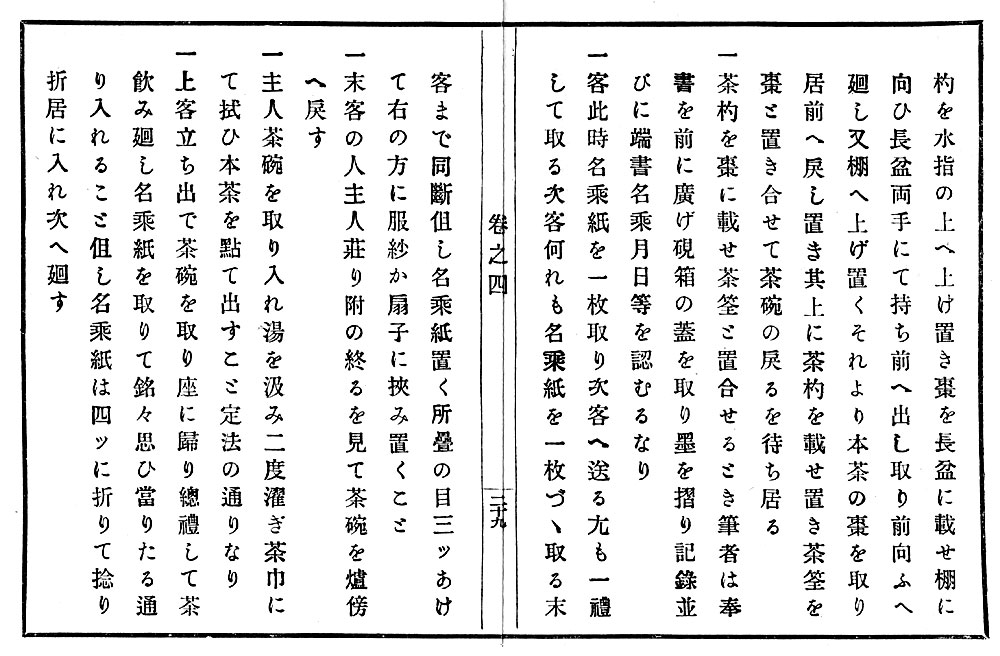 杓を水指の上へ上け置き棗を長盆に載せ棚に
向ひ長盆両手にて持ち前へ出し取り前向ふへ
廻し又棚へ上げ置くそれより本茶の棗を取り
居前へ戻し置き其上に茶杓を載せ置き茶筌を
棗と置き合せて茶碗の戻るを待ち居る
一茶杓を棗に載せ茶筌と置合せるとき筆者は奉
書を前に廣げ硯箱の蓋を取り墨を摺り記錄並
びに端書名乘月日等を認むるなり
一客此時名乘紙を一枚取り次客へ送る尤も一禮
して取る次客何れも名乘紙を一枚づヽ取る末
卷之四
三十九
客まで同斷但し名乘紙置く所疊の目三ッあけ
て右の方に服紗か扇子に挾み置くこと
一末客の人主人莊り附の終るを見て茶碗を爐傍
へ戾す
一主人茶碗を取り入れ湯を汲み二度濯ぎ茶巾に
て拭ひ本茶を點て出すこと定法の通りなり
一上客立ち出で茶碗を取り座に歸り總禮して茶
飮み廻し名乘紙を取りて銘々思ひ當りたる通
り入れること但し名乘紙は四ッに折りて捻り
折居に入れ次へ廻す